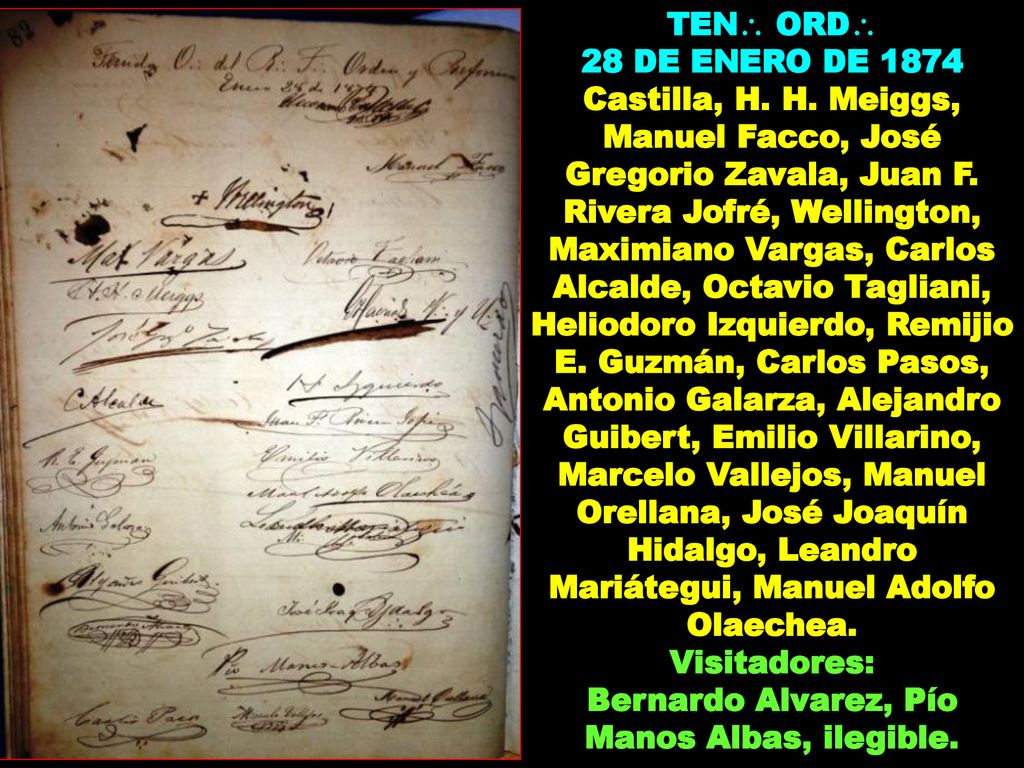 82
Tenida O. del R. F. Orden y Reforma
Enero 28 de 1874
Manuel Facco
+ Wellington
Max Vargas
Octavio Tagliani
H. H. Meiggs
José G. Zavala
C Alcalde
H Izquierdo
Juan F. Rivera Jofré
R. E. Guzman
Emilio Villarino
Manl Adolfo Olaechea
Antonio Galarza
Leandro Mariátegui
Alejandro Guibert
José Joaqn Hidalgo
Bernardo Alvarez
Pío Manos-Albas
Manuel Orellana
Carlos Pasos
Marcelo Vallejos
TEN∴ ORD∴
28 DE ENERO DE 1874
Castilla, H. H. Meiggs,
Manuel Facco, José
Gregorio Zavala, Juan F.
Rivera Jofré, Wellington,
Maximiano Vargas, Carlos
Alcalde, Octavio Tagliani,
Heliodoro Izquierdo, Remijio
E. Guzmán, Carlos Pasos,
Antonio Galarza, Alejandro
Guibert, Emilio Villarino,
Marcelo Vallejos, Manuel
Orellana, José Joaquín
Hidalgo, Leandro
Mariátegui, Manuel Adolfo
Olaechea.
Visitadores:
Bernardo Alvarez, Pío
Manos Albas, ilegible.